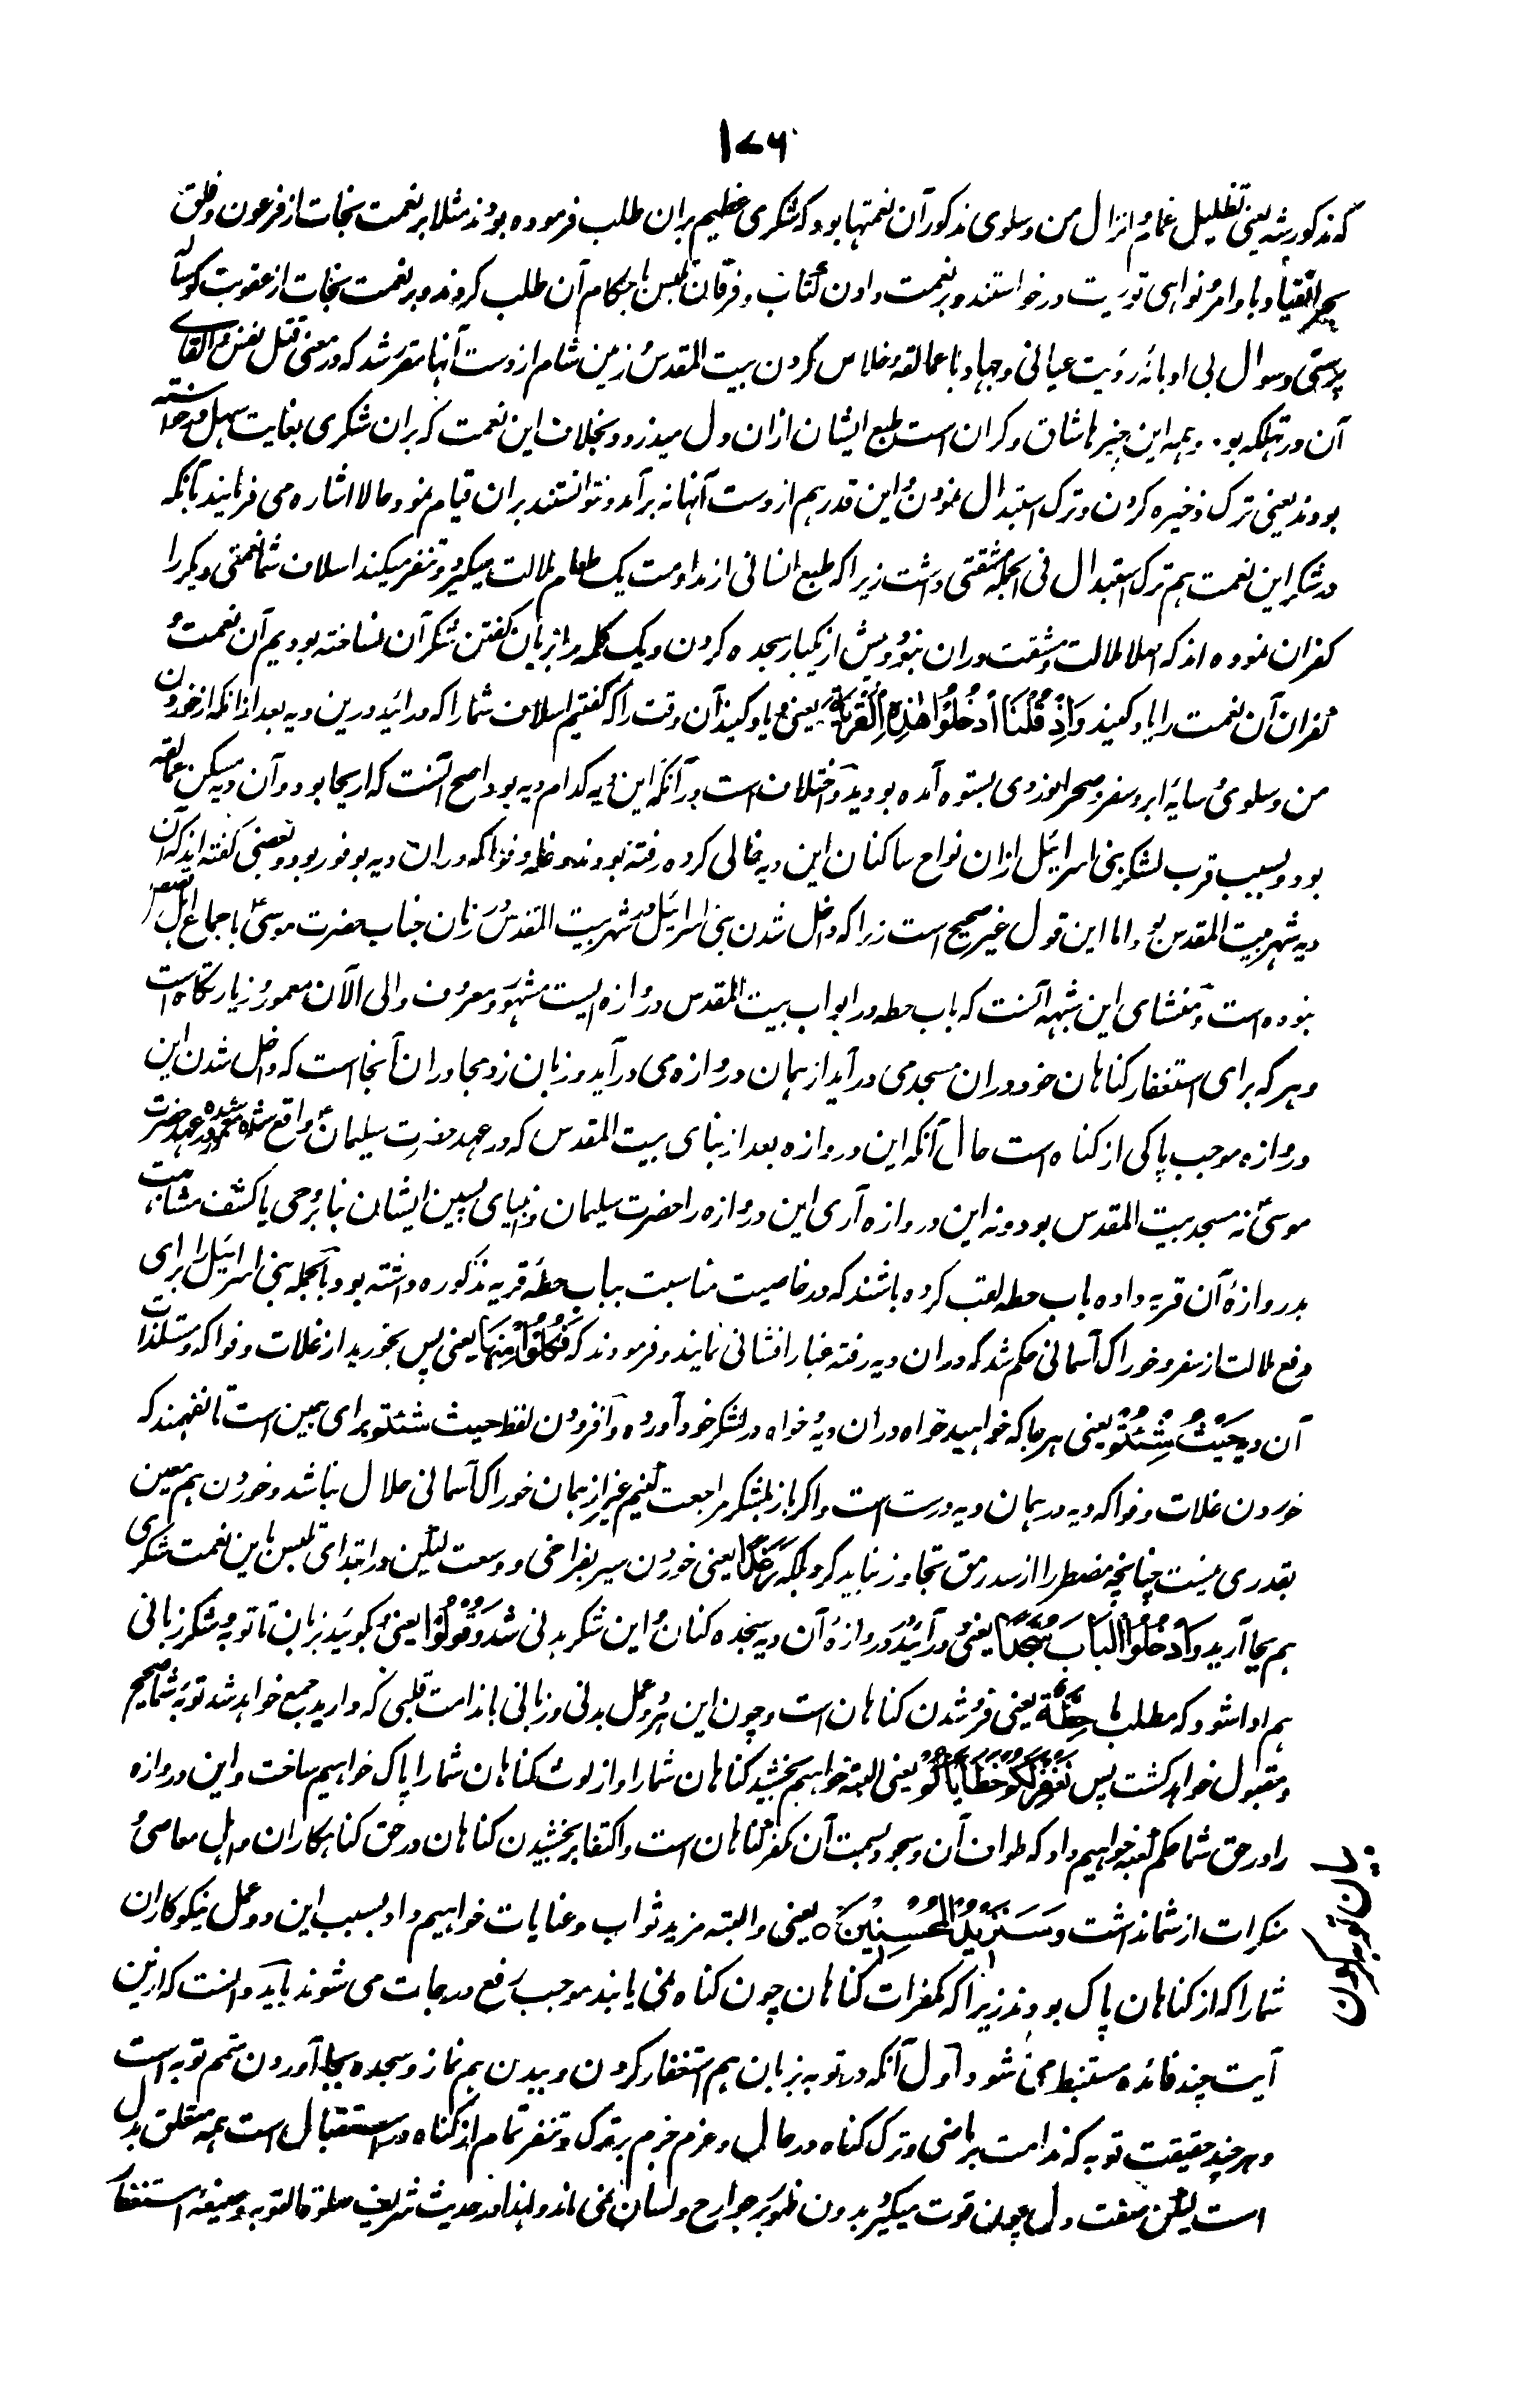 ۱۷۶
که مذکور شد یعنی تظلیل غمام و انزال من و سلوی مذکور آن نعمتها بود که شکری عظیم بران طلب فرموده بودند مثلا بر نعمت نجات از فرعون و فلق
بحر انقیاد با وامر و نواهی توریت درخواستند و بر نعمت دادن کتاب و فرقان تلبس باحکام آن طلب کردند و بر نعمت نجات از عقوبت گوساله
پرستی و سوال بی ادبانهٔ رؤیت عیانی و جهاد با عمالقه و خلاص کردن بیت المقدس و زمین شام از دست آنها مقرر شد که در معنی قتل نفس و القای
آن در تهلکه بود و همه این چیزها شاق و گران است طبع ایشان ازان دل میدزدد بخلاف این نعمت که بران شکری بغایت سهل درخواسته
بودند یعنی ترک ذخیره کردن و ترک استبدال نمودن و این قدر هم از دست آنها نه برآمد و نتوانستند بران قیام نمود حالا اشاره می فرمایند بآنکه
در شکر این نعمت هم ترک استبدال فی الجمله مشقتی داشت زیرا که طبع انسانی از مداومت یک طعام ملالت میگیرد و تنفر میکند اسلاف شما نعمتی دیگر را
کفران نموده اند که اصلا ملالت و مشقت دران نبود و بیش از یکبار سجده کردن و یک کلمه را از زبان گفتن شکر آن نساخته بودیم آن نعمت و
کفران آن نعمت را یاد کنید وَاِذْ قُلْنَا ادْخُلُوْا هٰذِهِ الْقَرْيَةَ یعنی و یاد کنید آن وقت را که گفتیم اسلاف شما را که درائید درین دیه بعد ازانکه از خوردن
من و سلوی و سایهٔ ابر و سفر و صحرا نوردی بستوه آمده بودید و اختلاف است درآنکه این دیه کدام دیه بود اصح آنست که اریحا بود و آن دیه مسکن عمالقه
بود و بسبب قرب لشکر بنی اسرائیل ازان نواح ساکنان این دیه خالی کرده رفته بودند و غله و فواکه دران دیه بوفور بود و بعضی گفته اند که آن
دیه شهر بیت المقدس بود اما این قول غیر صحیح است زیرا که داخل شدن بنی اسرائیل در شهر بیت المقدس در زمان جناب حضرت موسیٰ باجماع اهل قصص
نبوده است و منشای این شبهه آنست که باب حطه در ابواب بیت المقدس دروازه ایست مشهور و معروف و الی الآن معمور و زیارتگاه است
و هر که برای استغفار گناهان خود دران مسجد می درآید از همان دروازه می درآید و زبان زد مجاوران آنجا است که داخل شدن این
دروازه موجب پاکی از گناه است حال آنکه این دروازه بعد از بنای بیت المقدس که در عهد حضرت سلیمانؑ واقع شده معمور شده در عهد حضرت
موسیٰؑ نه مسجد بیت المقدس بود و نه این دروازه آری این دروازه را حضرت سلیمان و انبیای پسین ایشان بنا بر وحی یا کشف مشابهت
بدروازهٔ آن قریه داده باب حطه لقب کرده باشند که در خاصیت مناسبت بباب حطهٔ قریه مذکوره داشته بود بالجمله بنی اسرائیل را برای
دفع ملالت از سفر و خوراک آسمانی حکم شد که دران دیه رفته غبار افشانی نمایند و فرمودند که فَكُلُوْا مِنْهَا یعنی پس بخورید از غلات و فواکه و مستلذات
آن دیه حَيْثُ شِئْتُمْ یعنی هر جا که خواهید خواه دران دیه و خواه در لشکر خود آورده و افزودن لفظ حیث شئتم برای همین است تا نفهمند که
خوردن غلات و فواکه دیه در همان دیه درست است و اگر باز بلشکر مراجعت کنیم غیر از همان خوراک آسمانی حلال نباشد و خوردن هم معین
بقدری نیست چنانچه مضطر را از سد رمق تجاوز نباید کرد بلکه رَغَدًا یعنی خوردن سیر بفراخی و وسعت لیکن در ابتدای تلبس باین نعمت شکری
هم بجا آرید وَادْخُلُوا الْبَابَ سُجَّدًا یعنی و درآئید در دروازهٔ آن دیه سجده کنان و این شکر بدنی شد وَقُوْلُوْا یعنی و بگوئید بزبان تا توبه و شکر زبانی
هم ادا شود که مطلب ما حِطَّةٌ یعنی فروشدن گناهان است و چون این هر دو عمل بدنی و زبانی با ندامت قلبی که دارید جمع خواهد شد توبهٔ شما صحیح
و مقبول خواهد گشت پس نَغْفِرْ لَكُمْ خَطَايَاكُمْ یعنی البته خواهیم بخشید گناهان شما را و از لوث گناهان شما را پاک خواهیم ساخت و این دروازه
را در حق شما حکم کعبه خواهیم داد که طواف آن و سجود بسمت آن مکفر گناهان است و اکتفا بر بخشیدن گناهان در حق گناهکاران و اهل معاصی و
منکرات از شما نداشت وَسَنَزِيْدُ الْمُحْسِنِيْنَ ۝ یعنی و البته مزید ثواب و عنایات خواهیم داد بسبب این دو عمل نیکوکاران
شما را که از گناهان پاک بودند زیرا که مکفرات گناهان چون گناه نمی یابند موجب رفع درجات می شوند باید دانست که ازین
آیت چند فائده مستنبط می شود اول آنکه در توبه بزبان هم استغفار کردن و ببدن هم نماز و سجده بجا آوردن متمم توبه است
و هرچند حقیقت توبه که ندامت بر ماضی و ترک گناه در حال و عزم جزم بر ترک و تنفر تمام از گناه در استقبال است همه متعلق بدل
است لیکن صفت دل چون قوت میگیرد بدون ظهور بر جوارح و لسان نمی ماند و لهذا در حدیث شریف صلوة التوبه و صیغهٔ استغفار
بیان توبه کردن